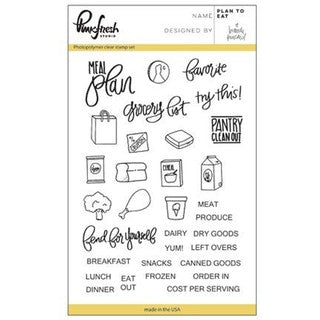 Pinkfresh
STUDIO
NAME PLAN TO
EAT
DESIGNED BY
Photopolymer clear stamp set
MEAL
plan
favorite
try this!
grocery list
PANTRY
CLEAN OUT
CEREAL
MILK
MEAT
PRODUCE
fend for yourself
DAIRY DRY GOODS
YUM! LEFT OVERS
BREAKFAST SNACKS CANNED GOODS
LUNCH EAT FROZEN ORDER IN
DINNER OUT COST PER SERVING
made in the USA